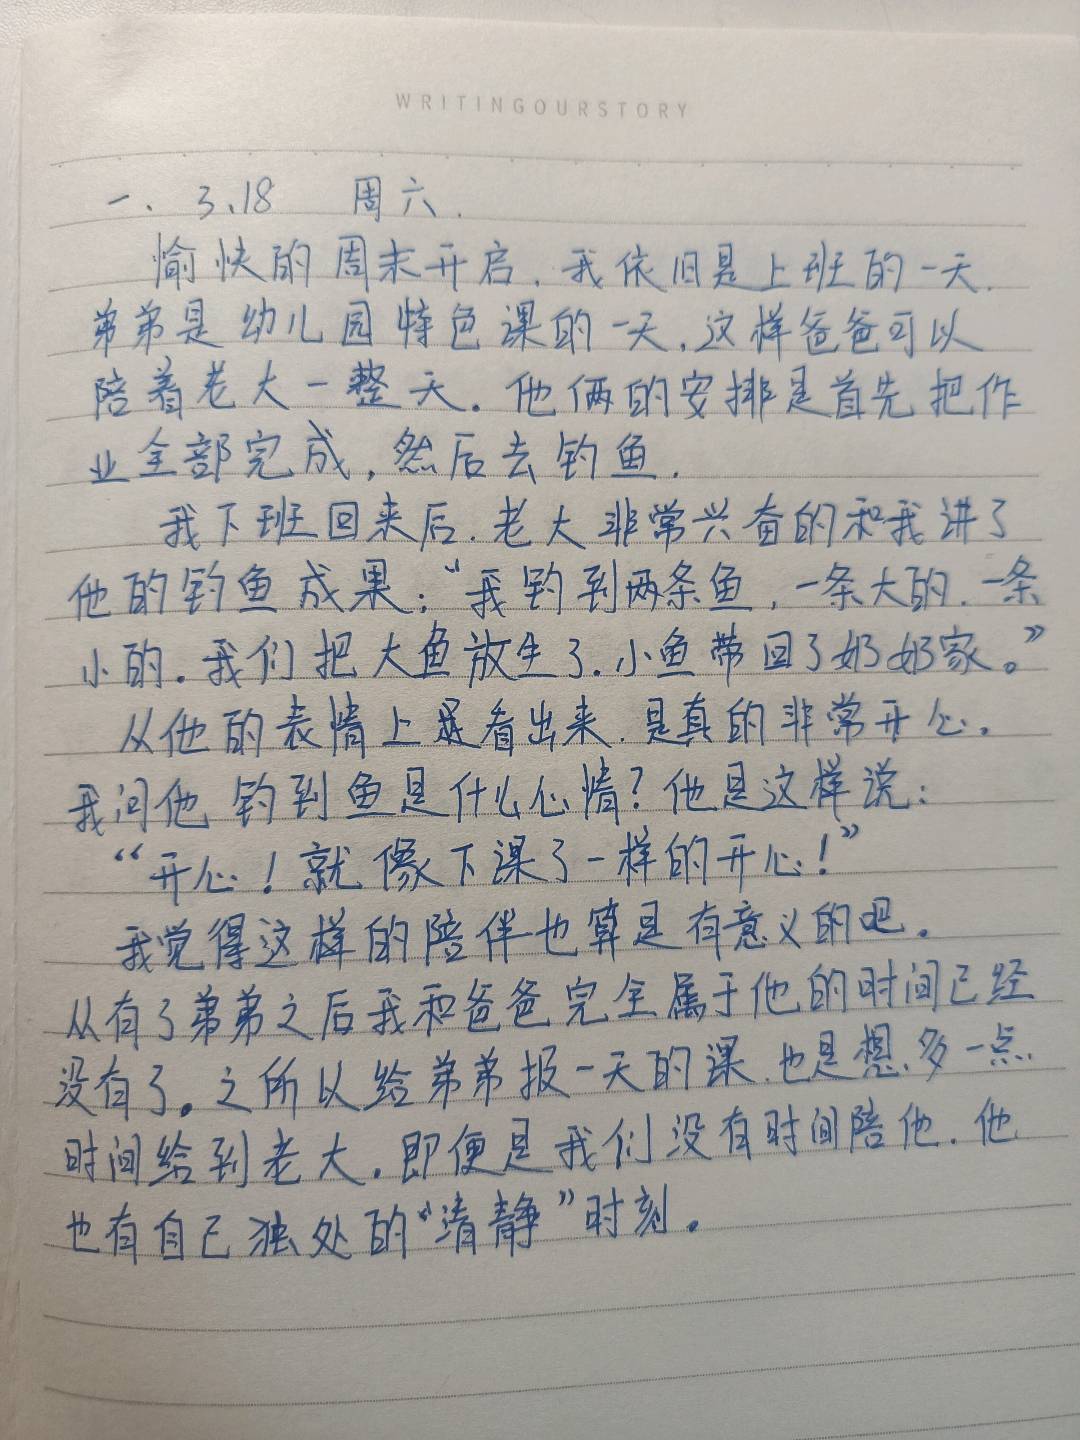 WRITINGOURSTORY
一、3.18 周六.
愉快的周末开启,我依旧是上班的一天.
弟弟是幼儿园特色课的一天,这样爸爸可以
陪着老大一整天。他俩的安排是首先把作
业全部完成,然后去钓鱼.
我下班回来后,老大非常兴奋的和我讲了
他的钓鱼成果:“我钓到两条鱼,一条大的,一条
小的。我们把大鱼放生了,小鱼带回了奶奶家。”
从他的表情上是看出来,是真的非常开心。
我问他钓到鱼是什么心情?他是这样说:
“开心!就像下课了一样的开心!”
我觉得这样的陪伴也算是有意义的吧。
从有了弟弟之后我和爸爸完全属于他的时间已经
没有了。之所以给弟弟报一天的课,也是想多一点
时间给到老大。即便是我们没有时间陪他,他
也有自己独处的“清静”时刻。